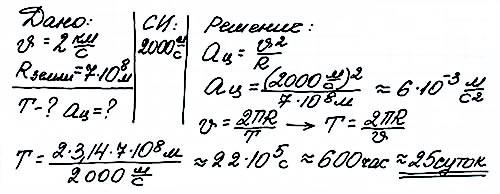 Дано:
υ = 2 км/с
Rземли = 7·10⁸ м
T-? aц = ?
СИ:
2000 м/с
Решение:
aц = υ²/R
aц = (2000 м/с)²/7·10⁸ м ≈ 6·10⁻³ м/с²
υ = 2πR/T → T = 2πR/υ
T = 2·3,14·7·10⁸ м/2000 м/с ≈ 22·10⁵ с ≈ 600 час ≈ 25 суток